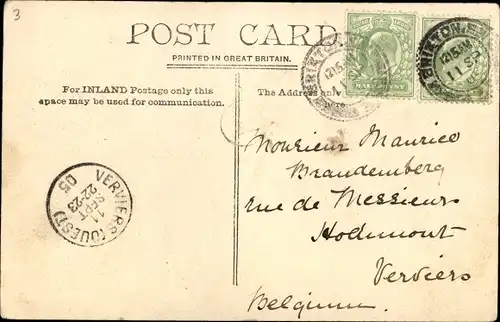 3
POST CARD
PRINTED IN GREAT BRITAIN.
For INLAND Postage only this
space may be used for communication.
The Address only
BRIXTON
12.15AM
BRIXTON
12.15AM
11 SP
HALFPENNY
Monsieur Maurice
Brandenberg
rue de Messieurs
Hodimont
Verviers
Belgium.
VERVIERS (OUEST)
11
SEPT
22-23
05